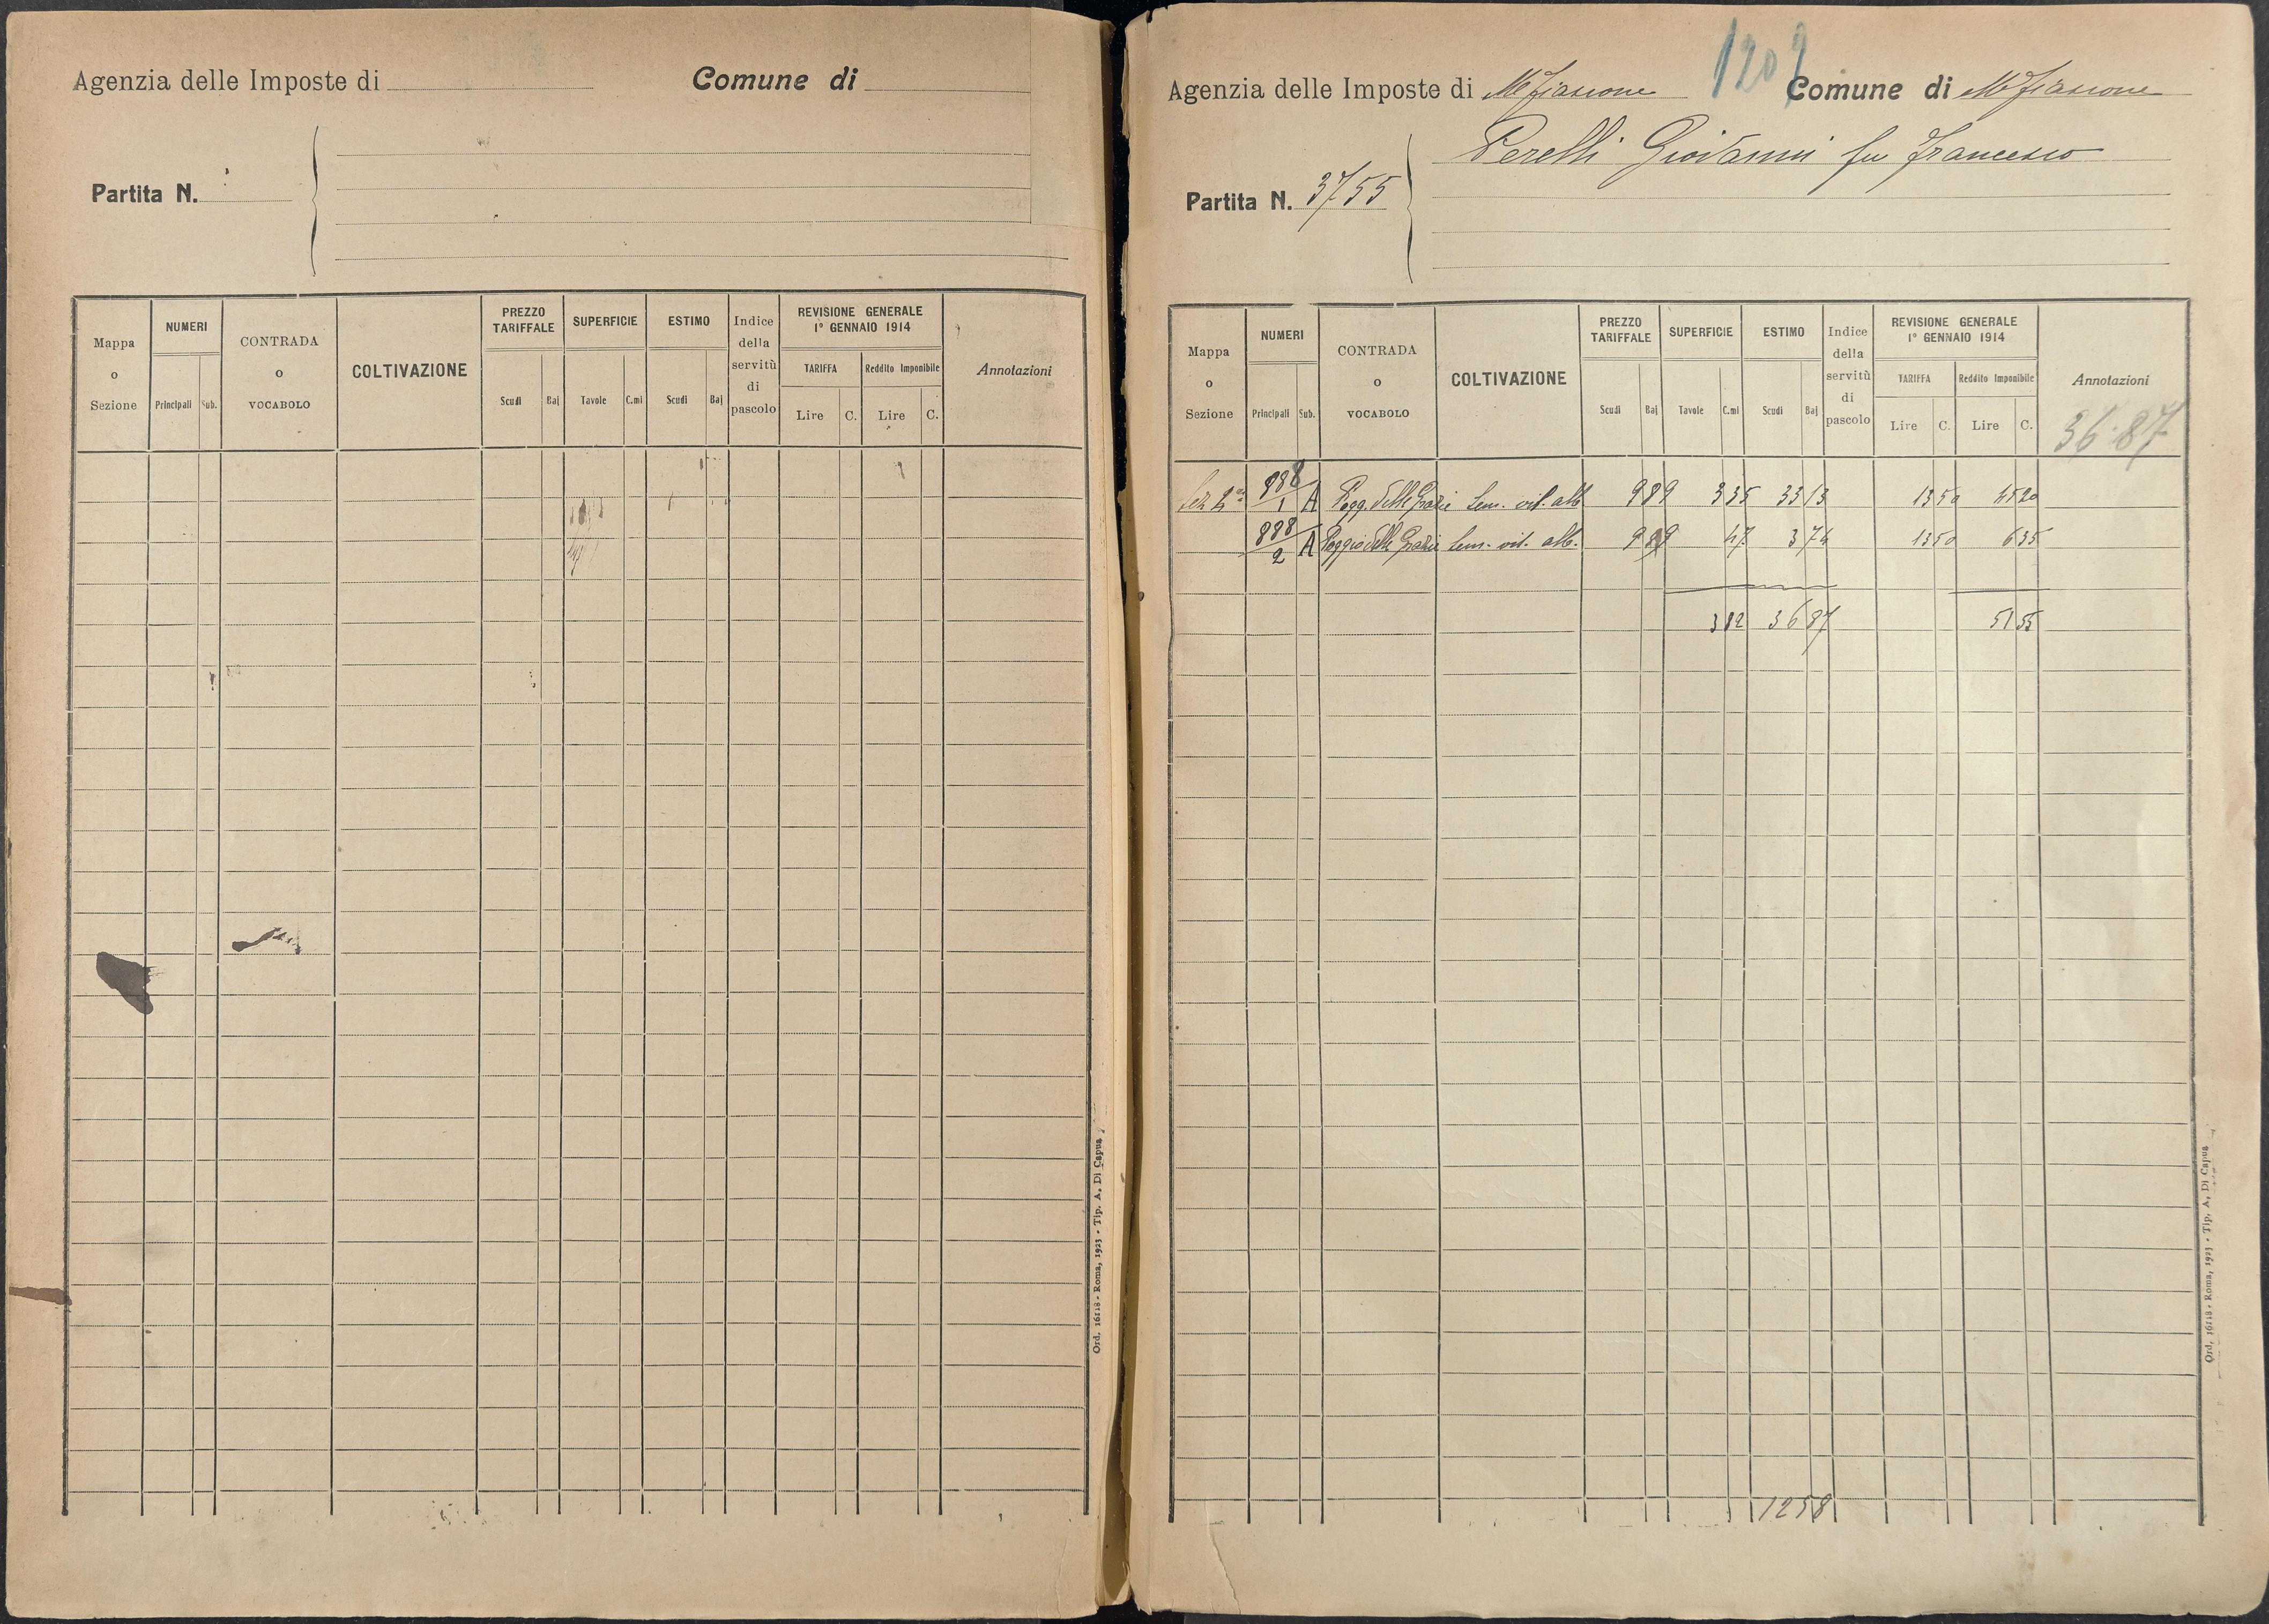 Agenzia delle Imposte di Comune di
Partita N.
Mappa o Sezione
NUMERI
Principali Sub.
CONTRADA o VOCABOLO
COLTIVAZIONE
PREZZO TARIFFALE
Scudi Baj
SUPERFICIE
Tavole C.mi
ESTIMO
Scudi Baj
Indice della servitù di pascolo
REVISIONE GENERALE
1° GENNAIO 1914
TARIFFA Reddito Imponibile
Lire C. Lire C.
Annotazioni
Ord. 16118 - Roma, 1923 - Tip. A. Di Capua
Agenzia delle Imposte di Mfiascone Comune di Mfiascone
Perelli Giovanni fu Francesco
Partita N. 3755
Mappa o Sezione
NUMERI
Principali Sub.
CONTRADA o VOCABOLO
COLTIVAZIONE
PREZZO TARIFFALE
Scudi Baj
SUPERFICIE
Tavole C.mi
ESTIMO
Scudi Baj
Indice della servitù di pascolo
REVISIONE GENERALE
1° GENNAIO 1914
TARIFFA Reddito Imponibile
Lire C. Lire C.
Annotazioni
36.87
888/1 A Pogg. delle Grazie Sem. vit. alb. 9 89 3 35 33 13 13 50 45 20
888/2 A Poggio delle Grazie Sem. vit. alb. 9 89 47 3 74 13 50 6 35
3 82 36 87 51 55
1258
Ord. 16118 - Roma, 1923 - Tip. A. Di Capua